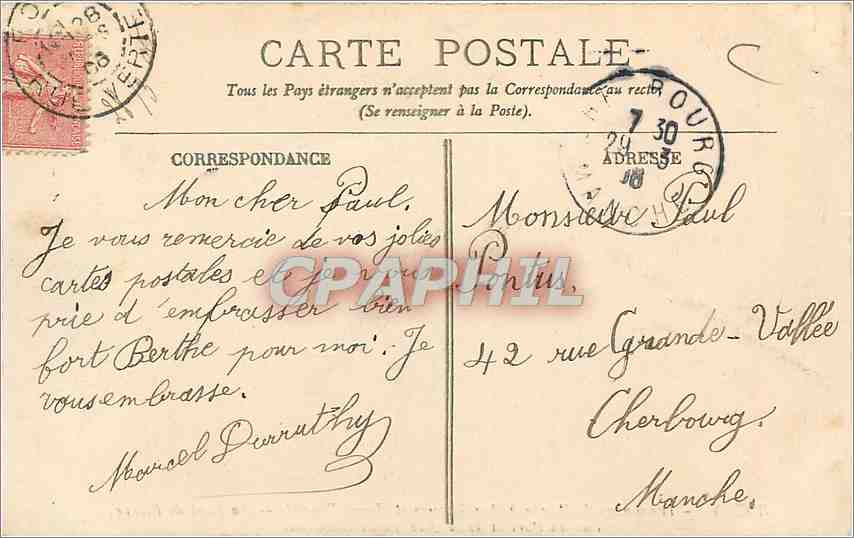 CARTE POSTALE
Tous les Pays étrangers n'acceptent pas la Correspondance au recto
(Se renseigner à la Poste).
CORRESPONDANCE
Mon cher Paul.
Je vous remercie de vos jolies
cartes postales et je vous
prie d'embrasser bien
fort Berthe pour moi. Je
vous embrasse.
Marcel Durruthy
ADRESSE
Monsieur Paul
Pontus.
42 rue Grande-Vallée
Cherbourg.
Manche.
CHERBOURG
7 30
29 3
08
MANCHE
CPAPHIL